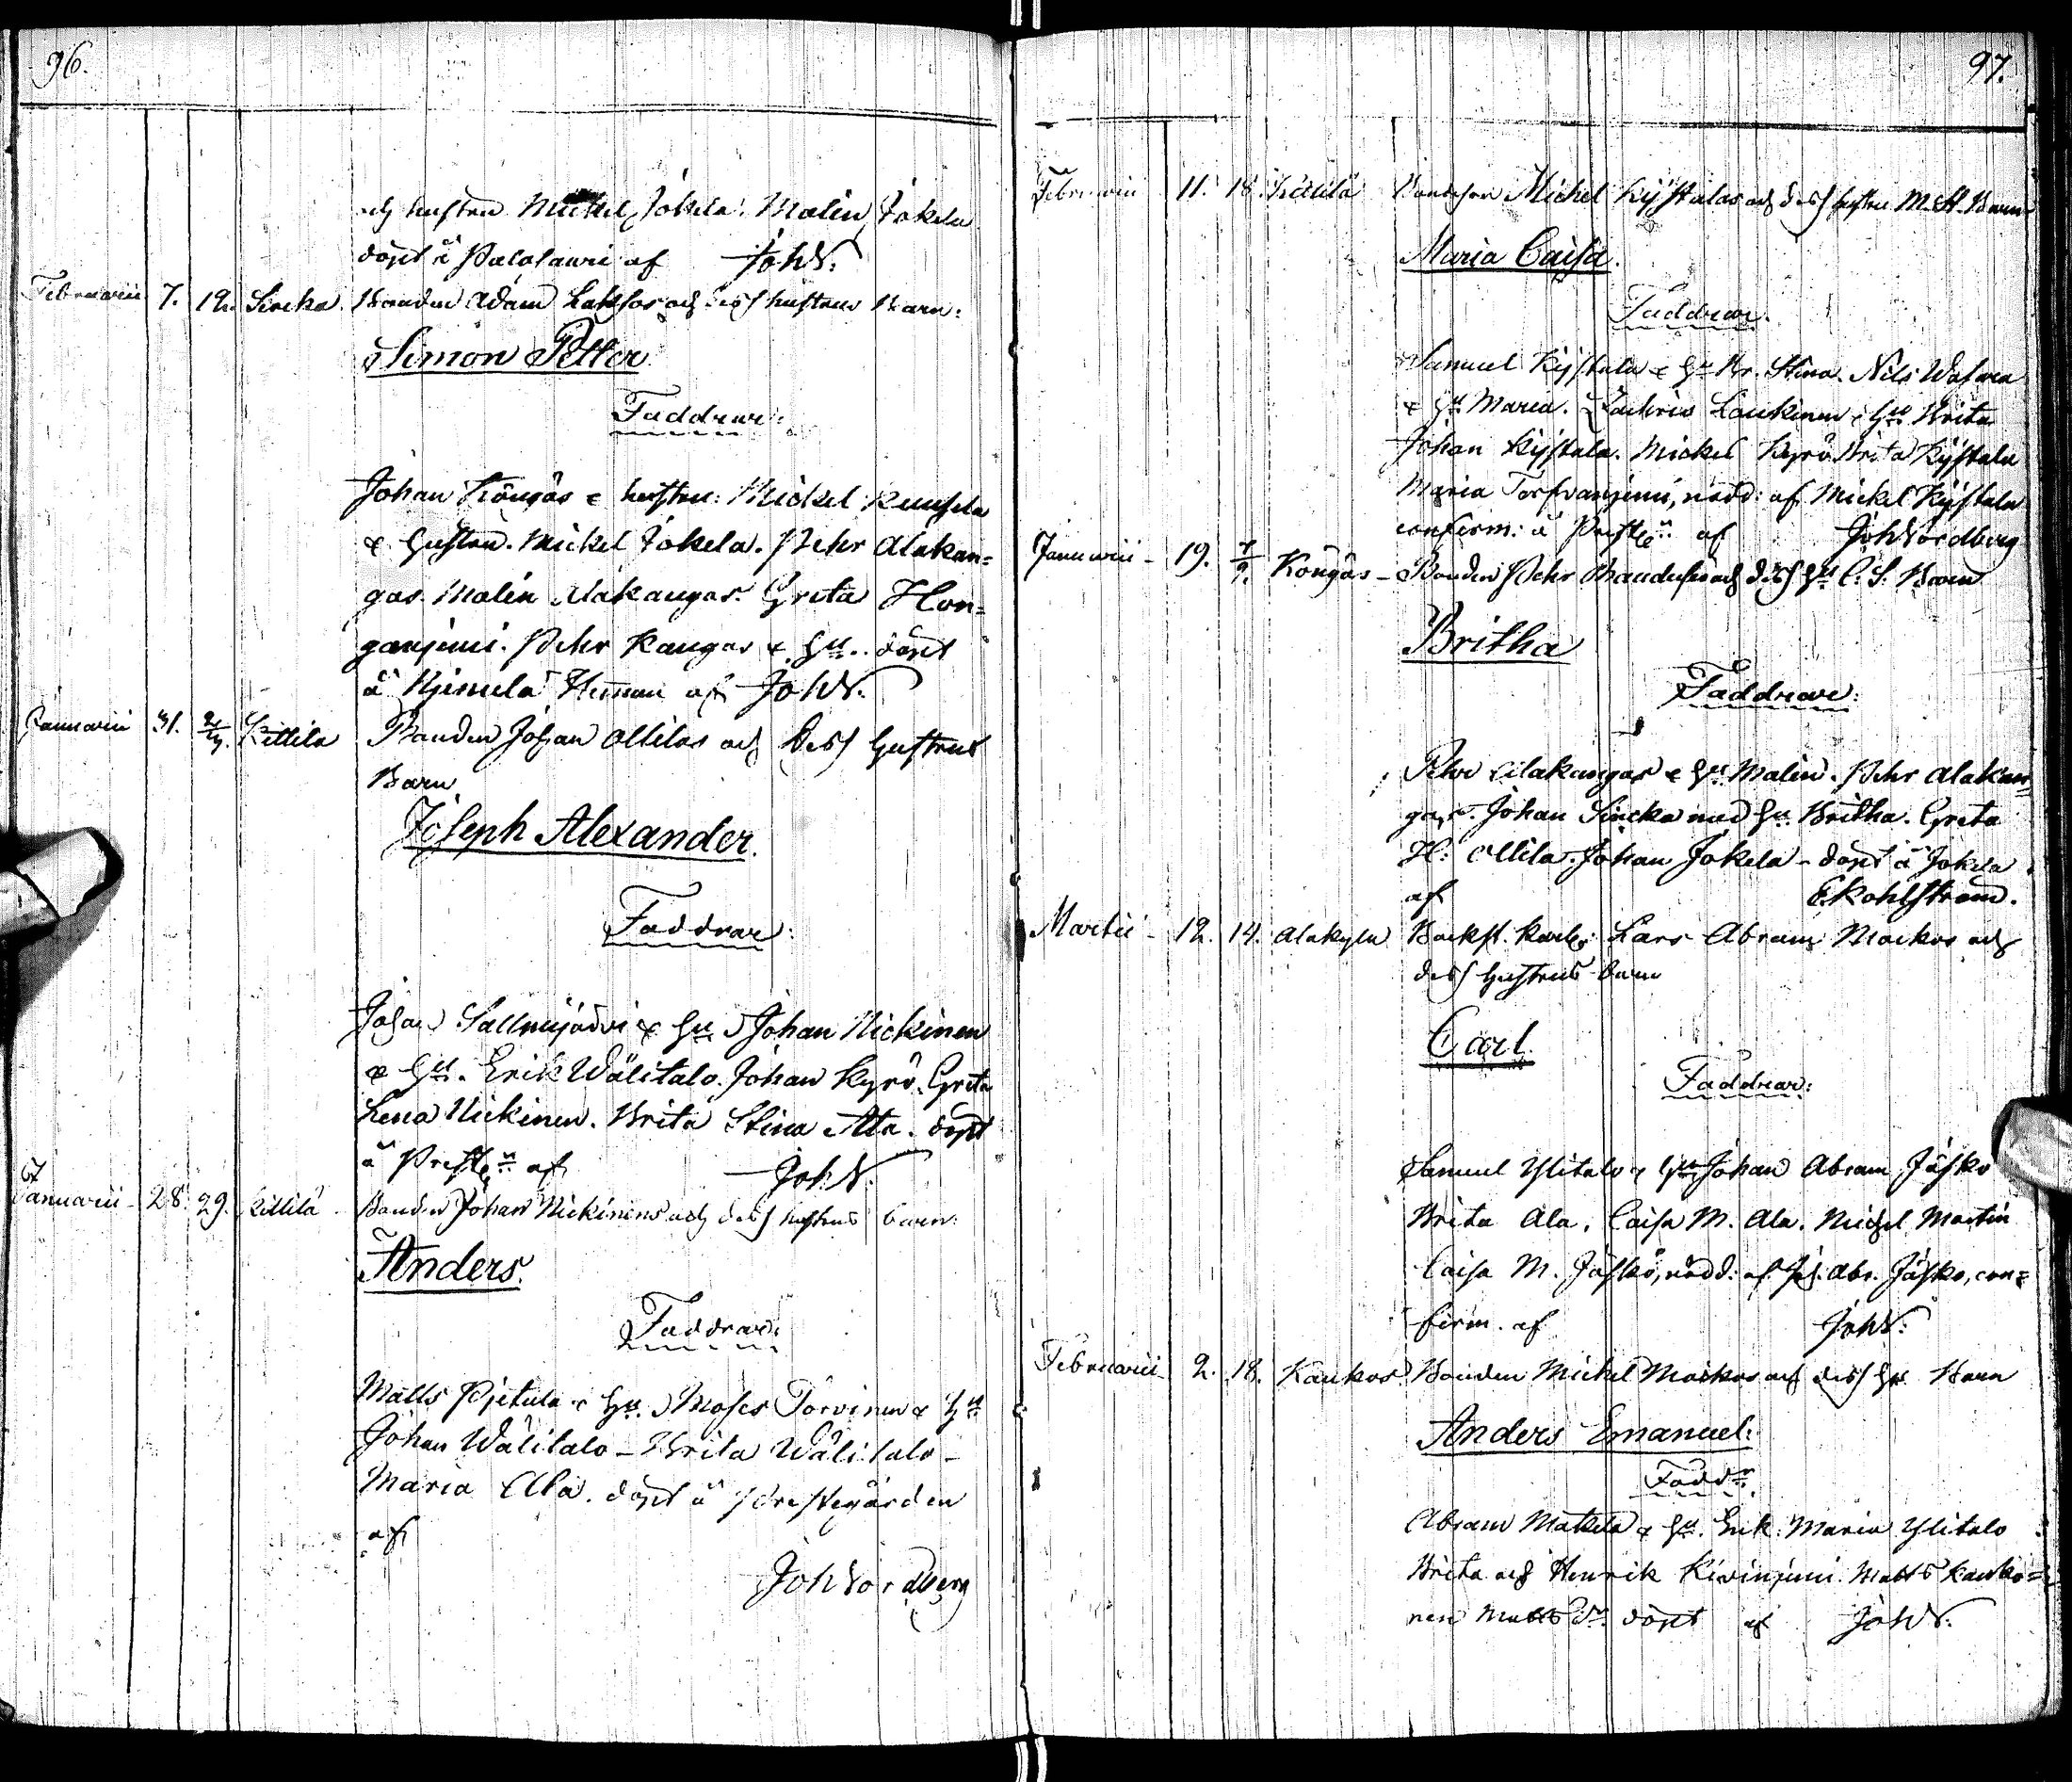 96.
och hustrun Mickel Jokela. Malin Jokela
döpt å Palolauri af Joh N.
Februarii 7. 12. Sircka Bonden Adam Laksos och dess hustrus Barn:
Simon Petter
Faddrar:
Johan Köngäs & hustru: Mickel
& hustru. Mickel Jokela. Pehr Alakan=
gas. Malin Alakangas. Greta Hon=
ganjemi. Pehr Kangas & Hu. döpt
å Heman af Joh N.
Januarii 31. 2/2. Kittilä Bonden Johan Ollilas och dess hustrus
Barn
Joseph Alexander.
Faddrar:
Johan & Hu Johan Nickinen
& Hu. Erik Wälitalo. Johan Kyrö. Greta
Lena Nickinen. Brita Stina Ala. döpt
å Prestg:n af Joh N.
Januarii 28. 29. Kittilä Bonden Johan Nickinens och dess hustrus barn:
Anders.
Faddrar:
Matts Pjetula & Hu. Moses Torvinen & Hu
Johan Wälitalo - Brita Wälitalo -
Maria Ala. döpt å Prestegården
af
Joh Nordberg
97.
Februarii 11. 18. Kittilä Michel Kystalas och dess hustru M. H. Barn
Maria Caisa.
Faddrar.
Samuel Kystala & Hu Br. Stina. Nils Wasara
& Hu Maria. Zachris Laukinen & Hu Brita
Johan Kystala. Mickel Kyrö Brita Kystala
Maria nödd: af Mickel Kystala
confirm: å Prestg:n af Joh Nordberg
Januarii 19. 7/9. Köngäs - Bonden Pehr och dess Hu C. S. Barn
Britha
Faddrar:
Pehr Alakangas & Hu Malin. Pehr Alakan=
gas. Johan Sircka med Hu Britha. Greta
H: Ollila. Johan Jokela - döpt å Jokela
af E Kohlström.
Martii 12. 14. Alakylä Backst. karlen: Lars Abram Mackos och
dess hustrus barn
Carl.
Faddrar:
Samuel Ylitalo & Hu Johan Abram Jäsko
Brita Ala. Caisa M. Ala. Michel Martin
Caisa M. Jäskö, nödd: af Joh. Abr. Jäsko, con=
firm. af Joh N:
Februarii 2. 18. Kaukos Bonden Michel Mackos och dess Hu Barn
Anders Emanuel:
Fadd:r
Abram Mattila & Hu. Erik. Maria Ylitalo
Brita och Henrik Kivinjemi. Matts Kauko=
nen döpt af Joh N: